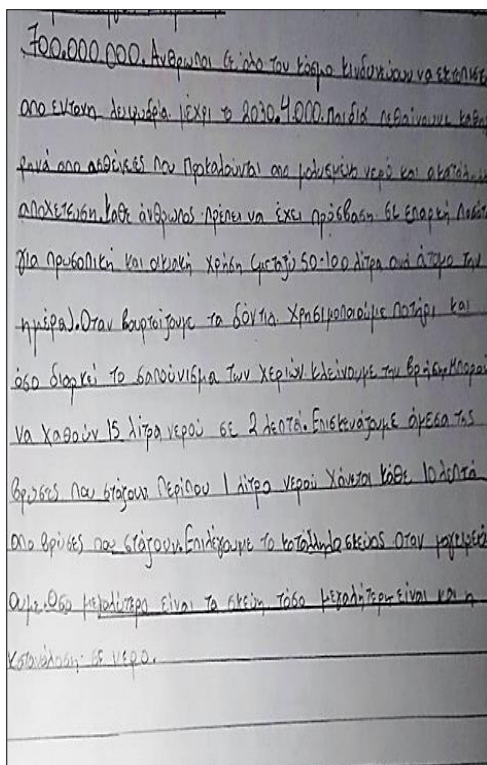 700.000.000. Ανθρωποι σε όλο τον κόσμο κινδυνεύουν να εκτοπιστο
απο εντονη λειψυδρία μέχρι το 2030. 4.000. παιδιά πεθαίνουνε καθη
ρινά απο ασθένειες που προκαλούνται απο μολυσμένο νερό και ακατάλλη
αποχετευση. Καθε άνθρωπος πρέπει να έχει πρόσβαση σε επαρκή ποσότ
για προσοπική και οικιακή χρήση (μεταξύ 50-100 λίτρα ανά άτομο την
ημέρα). Οταν βουρτσίζουμε τα δόντια χρησιμοποιούμε ποτήρι και
όσο διαρκεί το σαπούνισμα των χεριών κλείνουμε την βρύση. Μπορού
να χαθούν 15 λίτρα νερού σε 2 λεπτά. Επισκευάζουμε άμεσα τις
βρύσες που στάζουν. Περίπου 1 λίτρο νερού χάνεται κάθε 10 λεπτά
απο βρύσες που στάζουν. Επιλέγουμε το κατάλληλο σκεύος οταν μαγειρεύ
ουμε. Οσο μεγαλύτερα είναι τα σκεύη τόσο μεγαλήτερη είναι και η
κατανάλοση σε νερο.